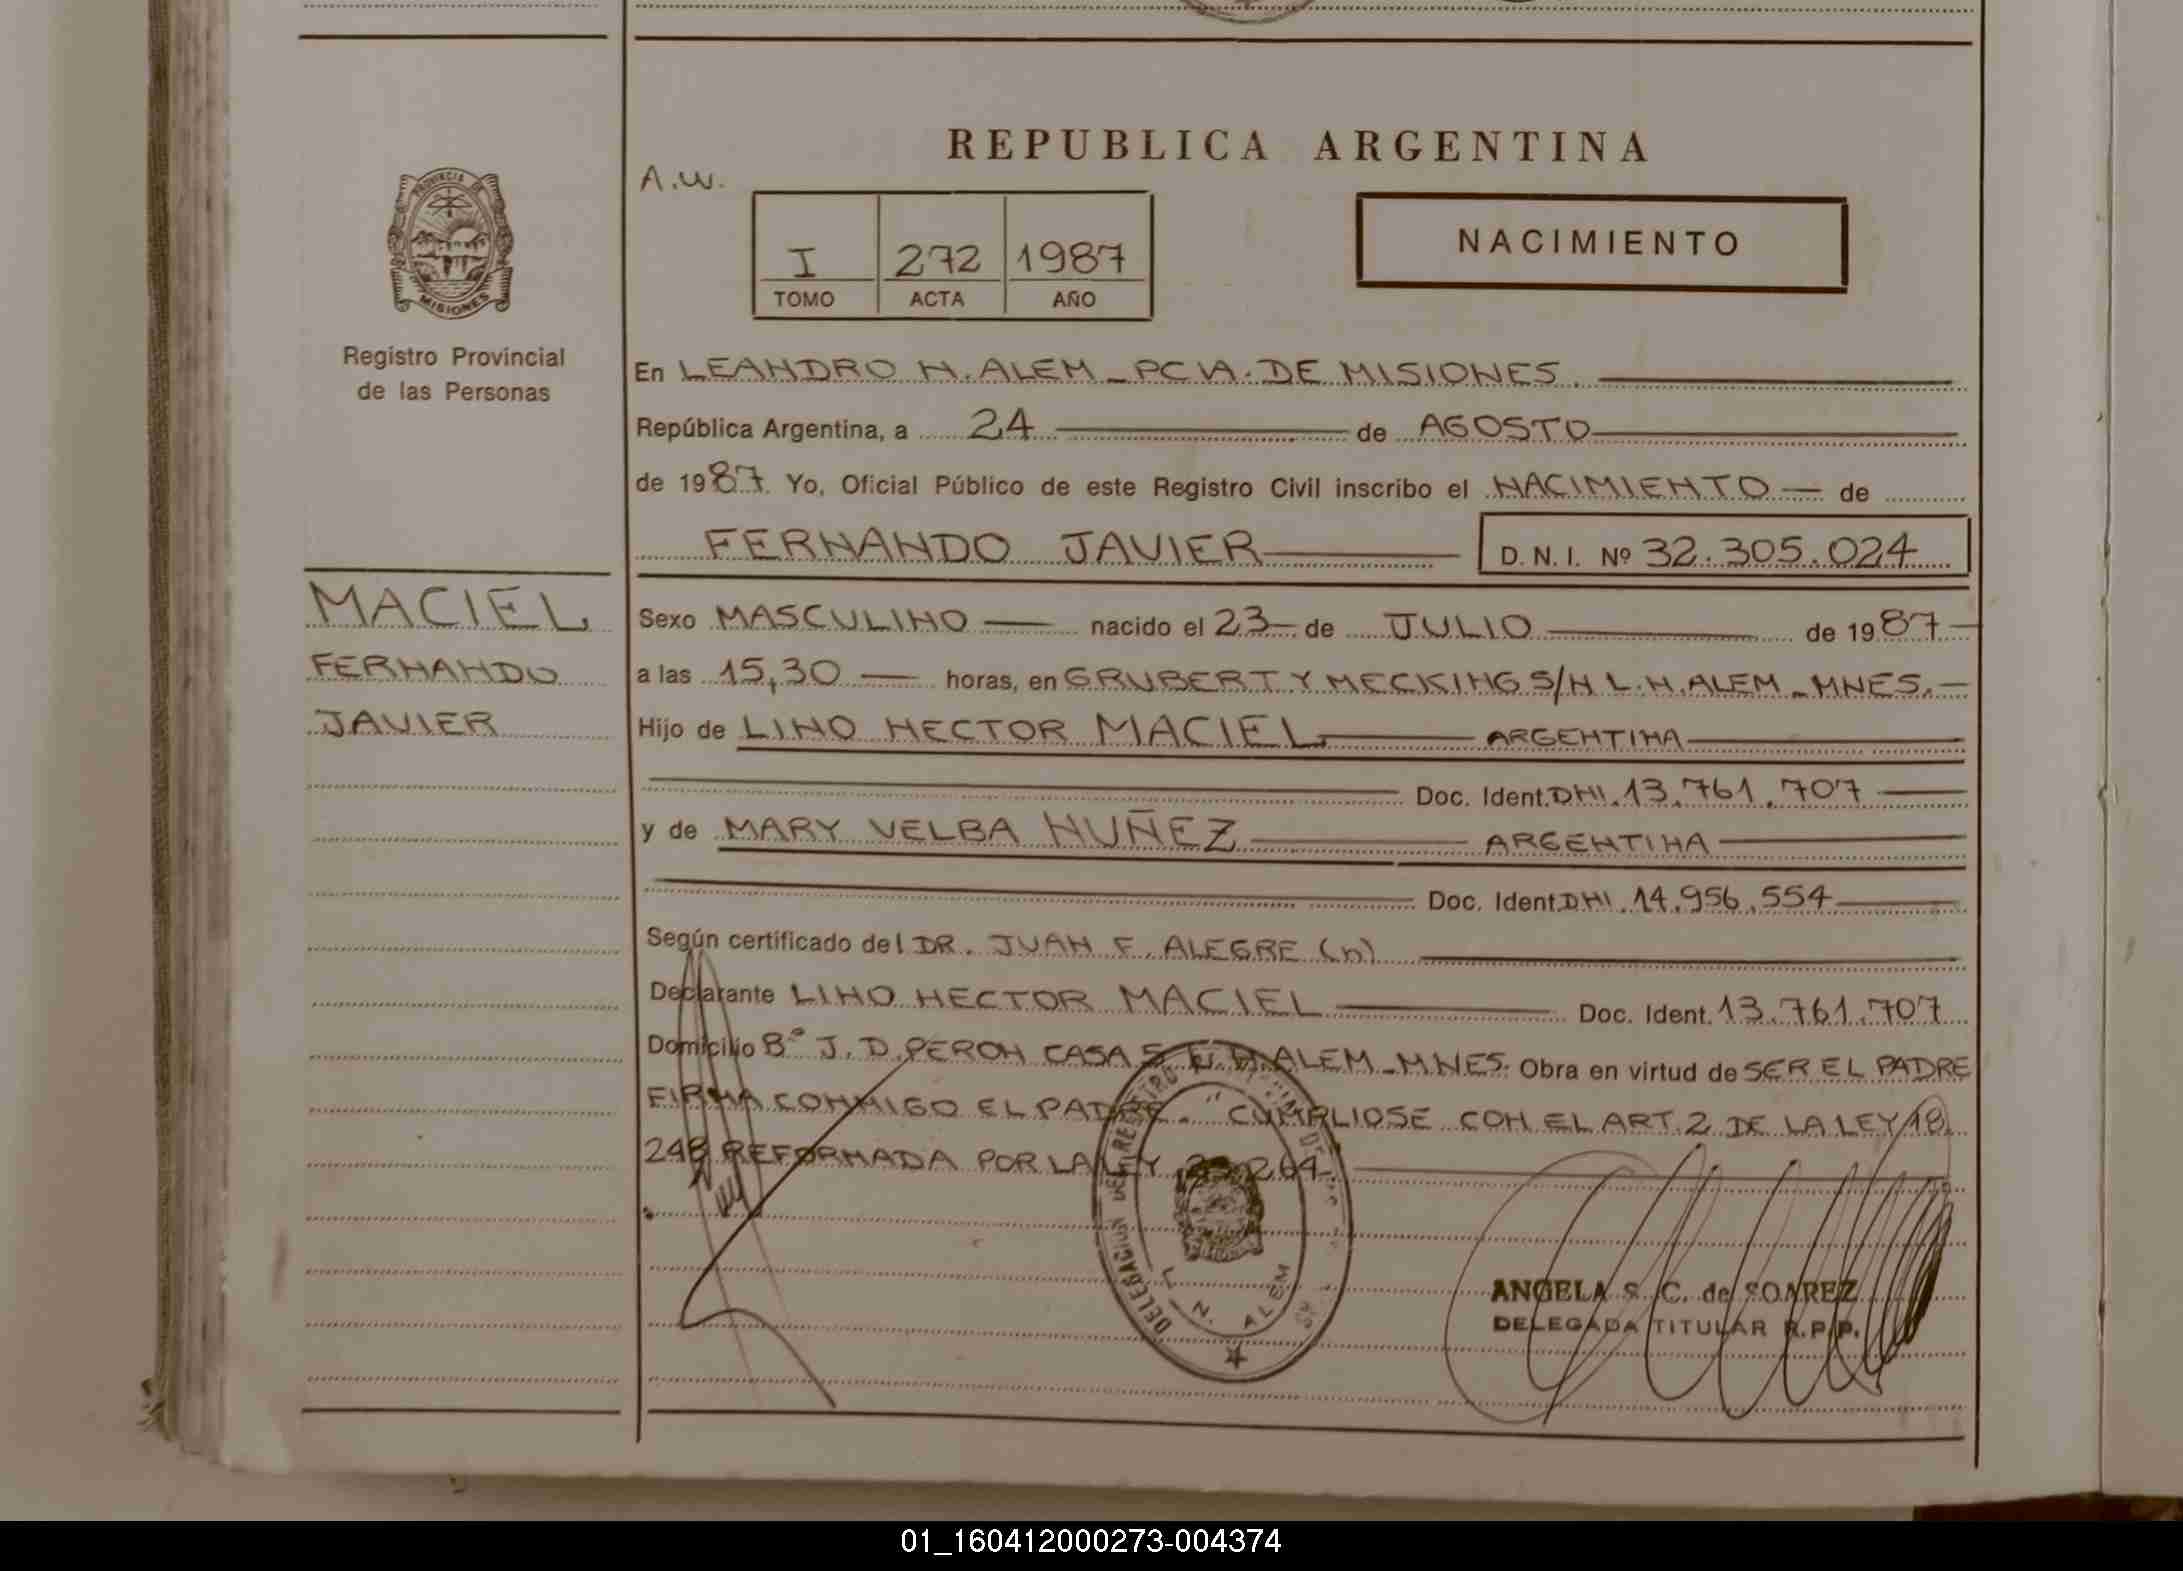 REPUBLICA ARGENTINA
A.W.
PROVINCIA DE
MISIONES
I 272 1987
TOMO ACTA AÑO
NACIMIENTO
Registro Provincial
de las Personas
En LEANDRO N. ALEM - PCIA. DE MISIONES.
República Argentina, a 24 de AGOSTO
de 1987. Yo, Oficial Público de este Registro Civil inscribo el NACIMIENTO de
FERNANDO JAVIER D.N.I. Nº 32.305.024
MACIEL
FERNANDO
JAVIER
Sexo MASCULINO nacido el 23 de JULIO de 1987
a las 15,30 horas, en GRUBERT Y MECKING S/N L.N. ALEM - MNES.
Hijo de LINO HECTOR MACIEL ARGENTINA
Doc. Ident. DNI. 13.761.707
y de MARY VELBA NUÑEZ ARGENTINA
Doc. Ident. DNI. 14.956.554
Según certificado del DR. JUAN F. ALEGRE (h)
Declarante LINO HECTOR MACIEL Doc. Ident. 13.761.707
Domicilio Bº J. D. PERON CASA 5 L. N. ALEM - MNES. Obra en virtud de SER EL PADRE
FIRMA CONMIGO EL PADRE. - "CUMPLIOSE CON EL ART. 2 DE LA LEY 18.
248 REFORMADA POR LA LEY 264
DELEGACION DEL REGISTRO
L. N. ALEM
ANGELA S. C. de SOAREZ
DELEGADA TITULAR R.P.P.
01_160412000273-004374